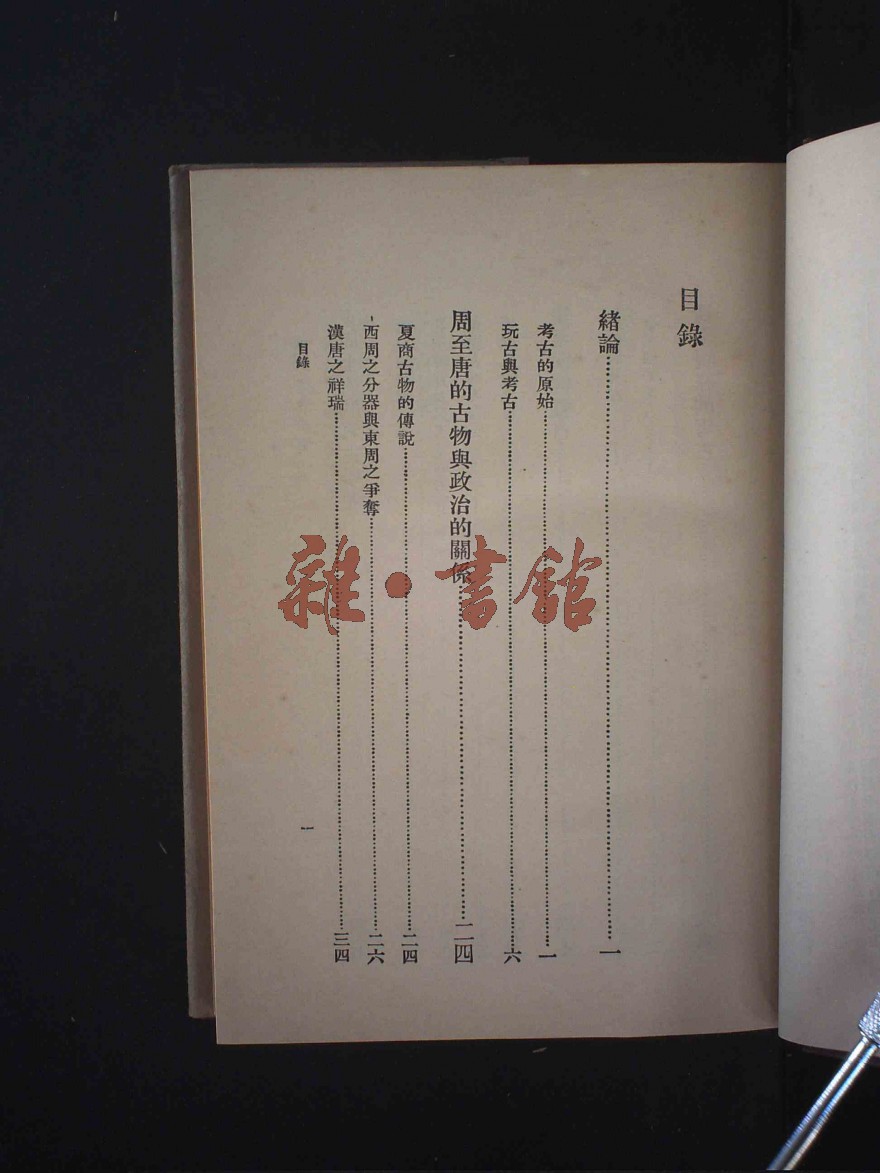 目錄
緒論……一
考古的原始……一
玩古與考古……六
周至唐的古物與政治的關係……二四
夏商古物的傳說……二四
西周之分器與東周之爭奪……二六
漢唐之祥瑞……三四
目錄
一
雜·書館